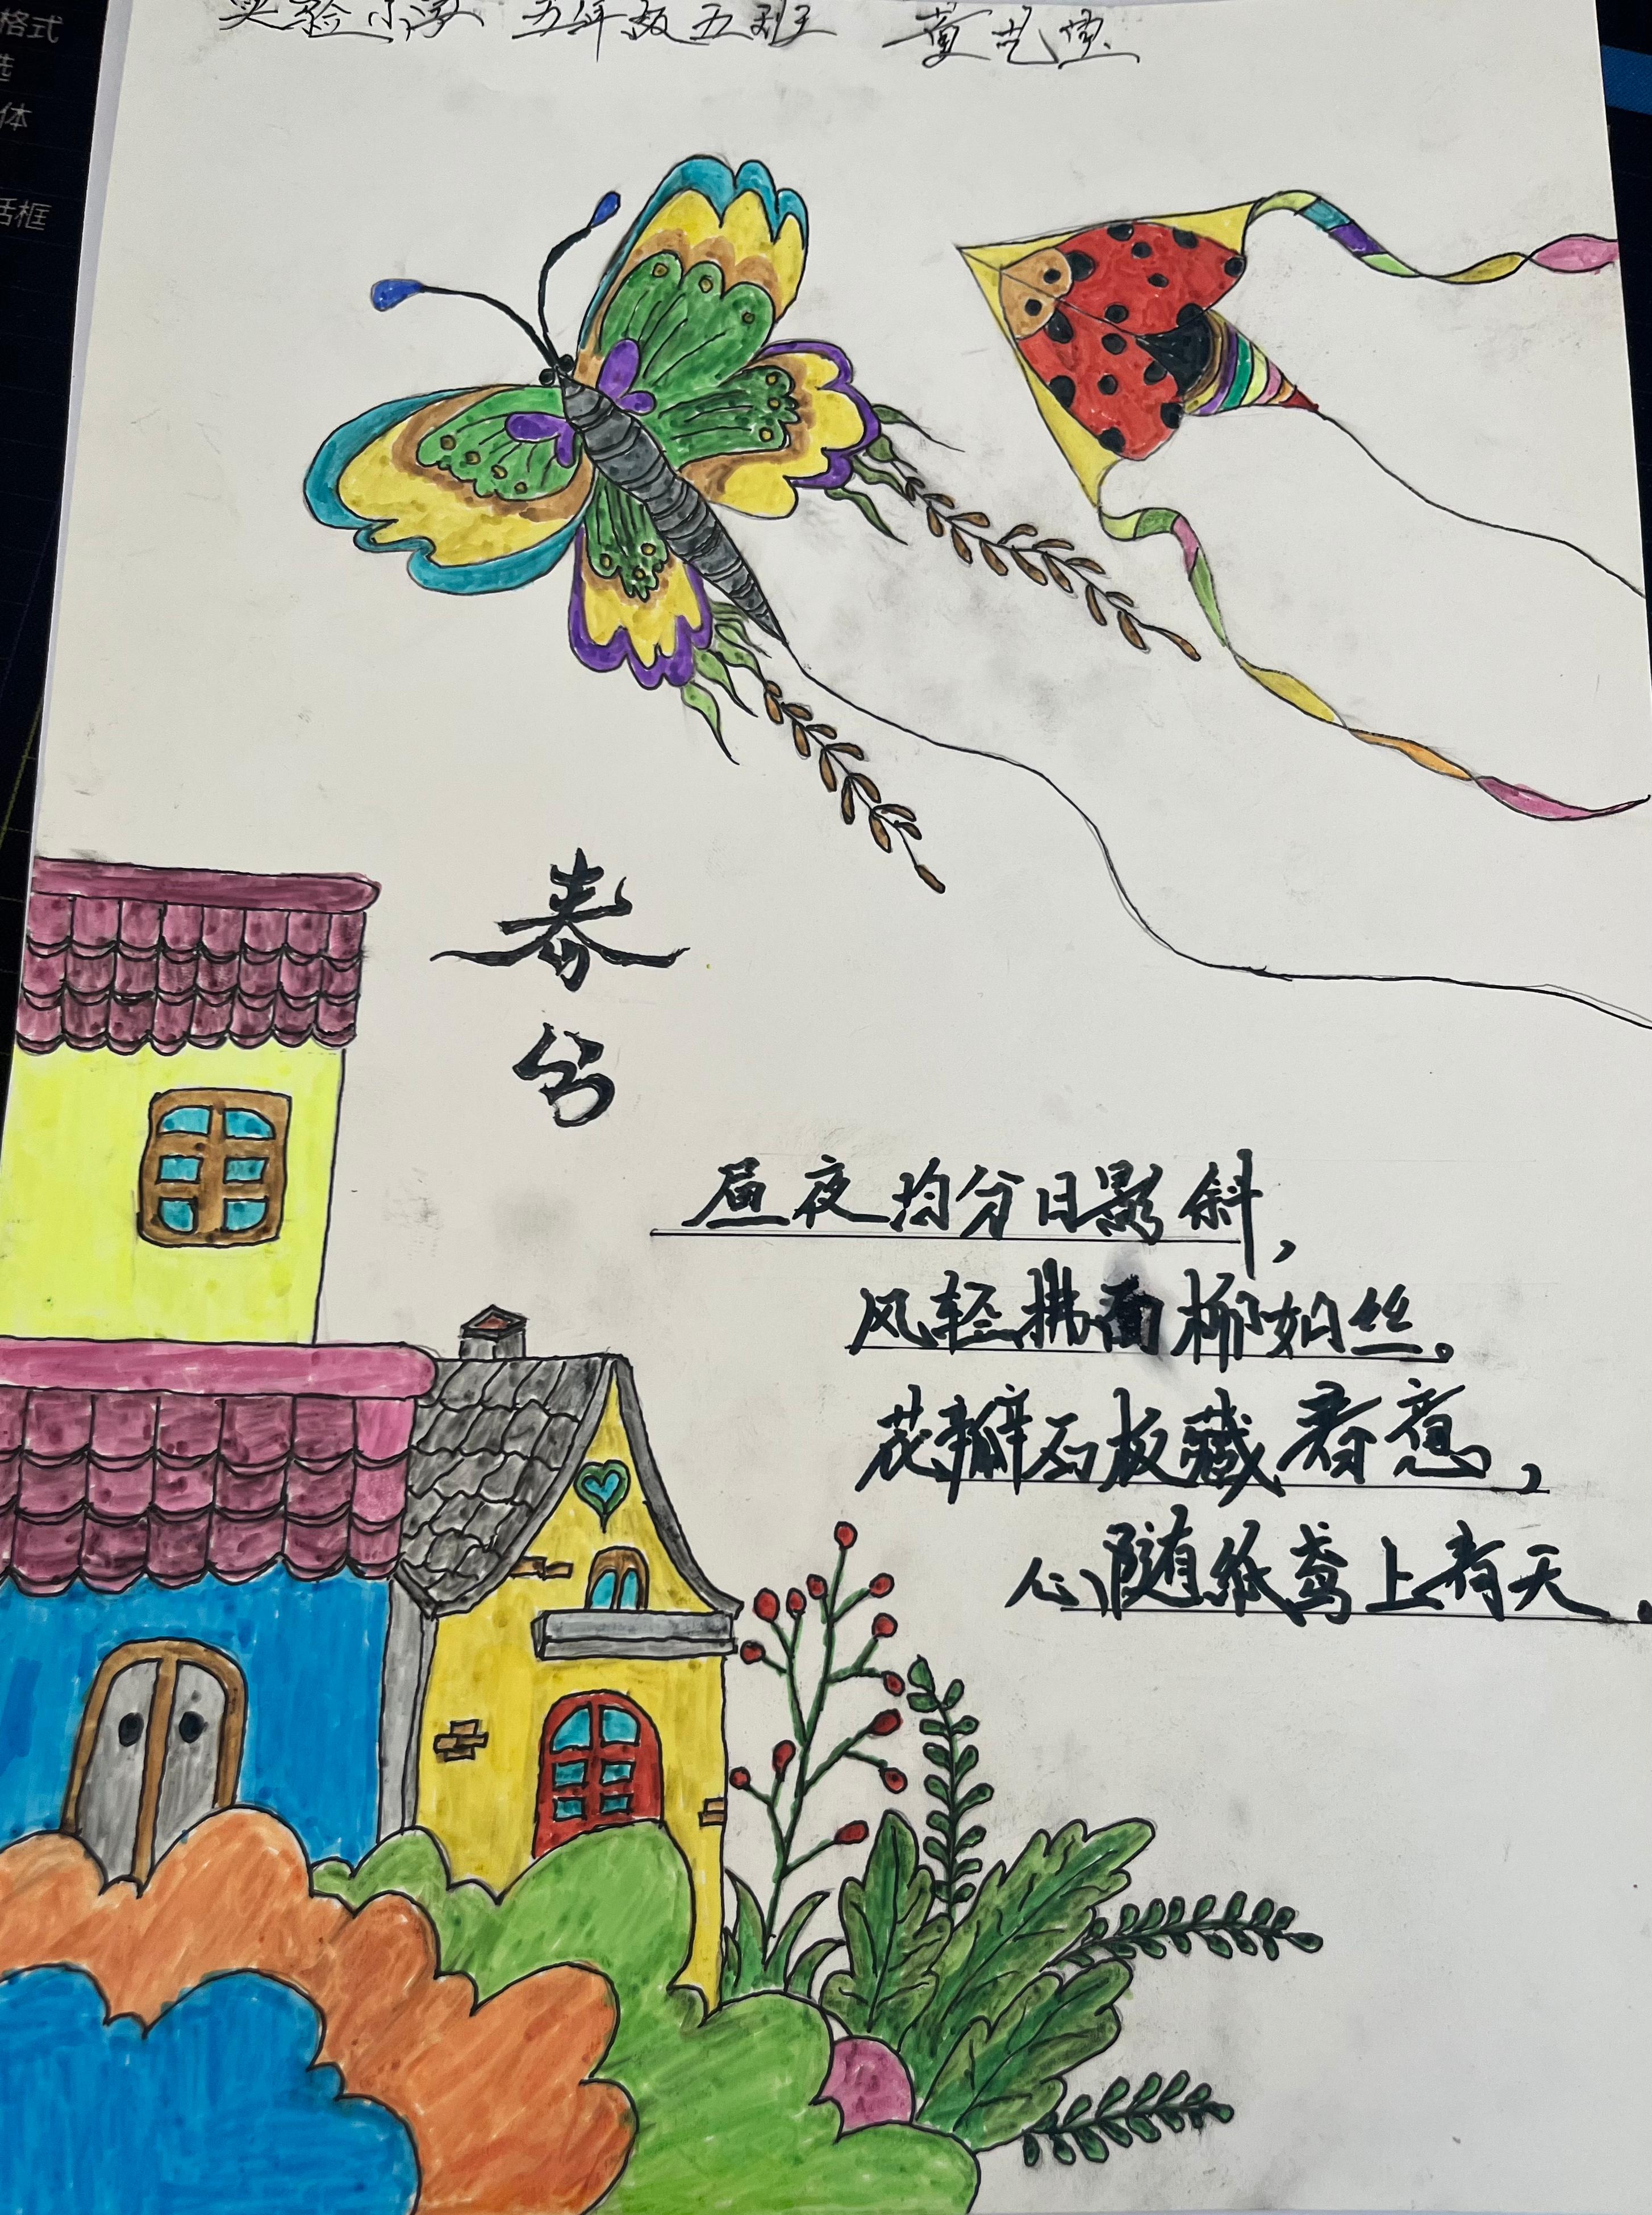 实验小学 五年级五班 黄艺
格式
选
体
活框
春
分
昼夜均分日影斜，
风轻拂面柳如丝。
花瓣石板藏春意，
心随纸鸢上青天.